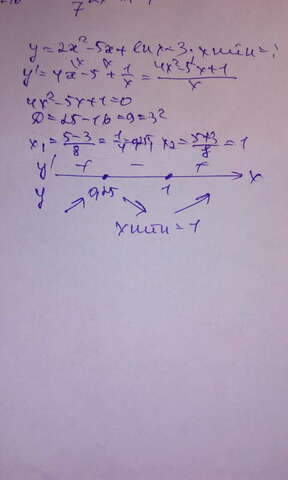 7
y = 2x² - 5x + ln x - 3. x min = ?
y' = 4x - 5 + 1/x = (4x² - 5x + 1)/x
4x² - 5x + 1 = 0
D = 25 - 16 = 9 = 3²
x₁ = (5-3)/8 = 1/4 = 0,25, x₂ = (5+3)/8 = 1
y' + - + x
y 0,25 1
x min = 1